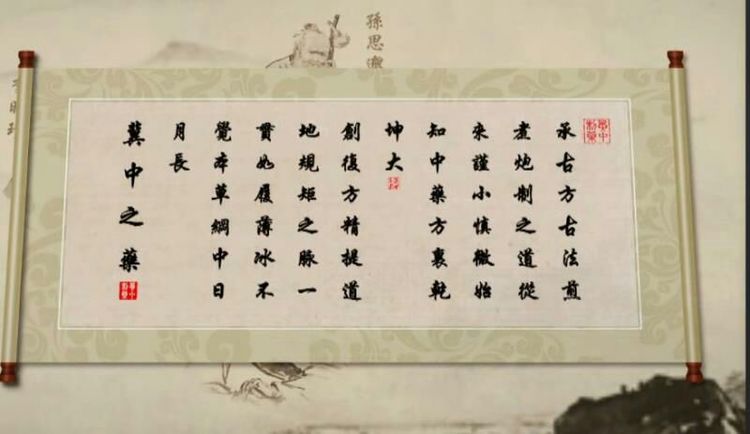 承古方古法煎
煮炮制之道從
來謹小慎微始
知中藥方裏乾
坤大
創復方精提道
地規矩之脉一
貫如履薄冰不
覺本草綱中日
月長
冀中之藥
孫思邈